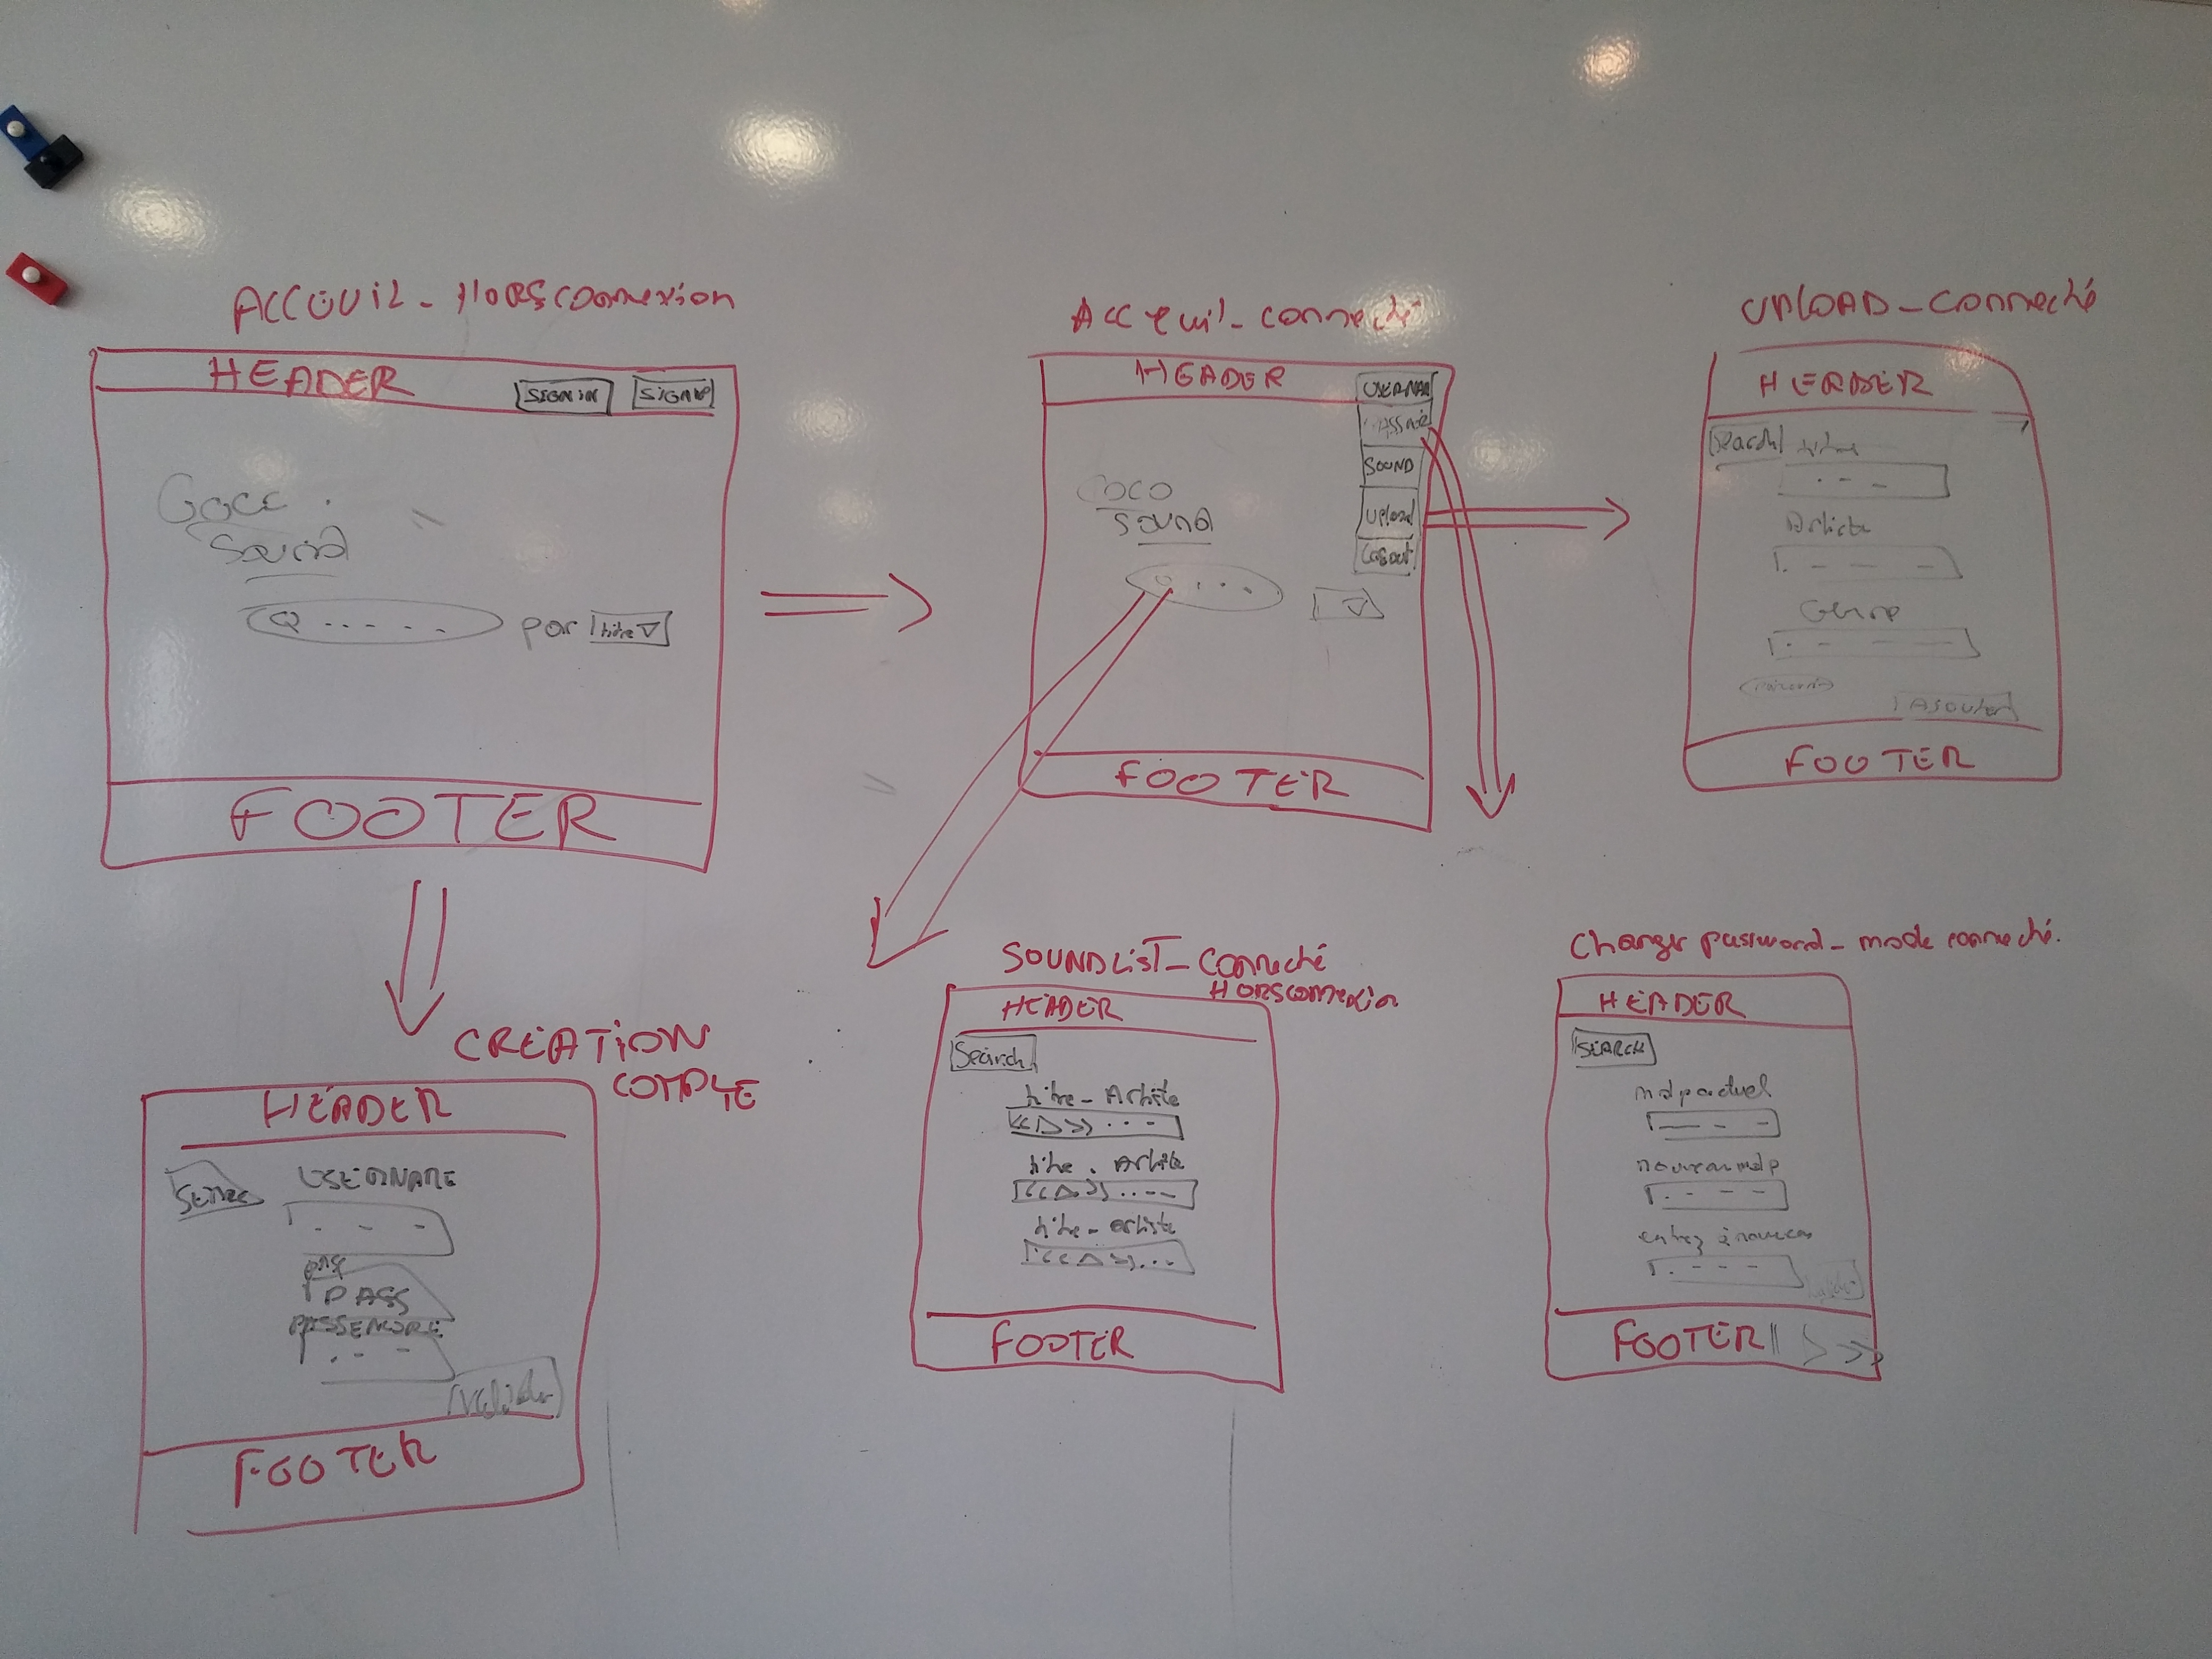 ACCEUIL_HORSCONNEXION
HEADER
SIGN IN
SIGNUP
Sound
Q .....
par
titre ▽
FOOTER
Acceuil_connecté
HEADER
USERNAM
SOUND
Upload
Logout
COCO
Sound
FOOTER
UPLOAD_Connecté
HEADER
Search
titre
Artiste
Genre
FOOTER
CREATION
COMPTE
HEADER
USERNAME
PASS
Valider
FOOTER
SOUNDLIST_Connecté
HORSconnexion
HEADER
Search
titre_Artiste
titre. Artiste
titre_artiste
FOOTER
Change password_mode connecté.
HEADER
SEARCH
mdp actuel
nouveau mdp
entrez à nouveau
FOOTER